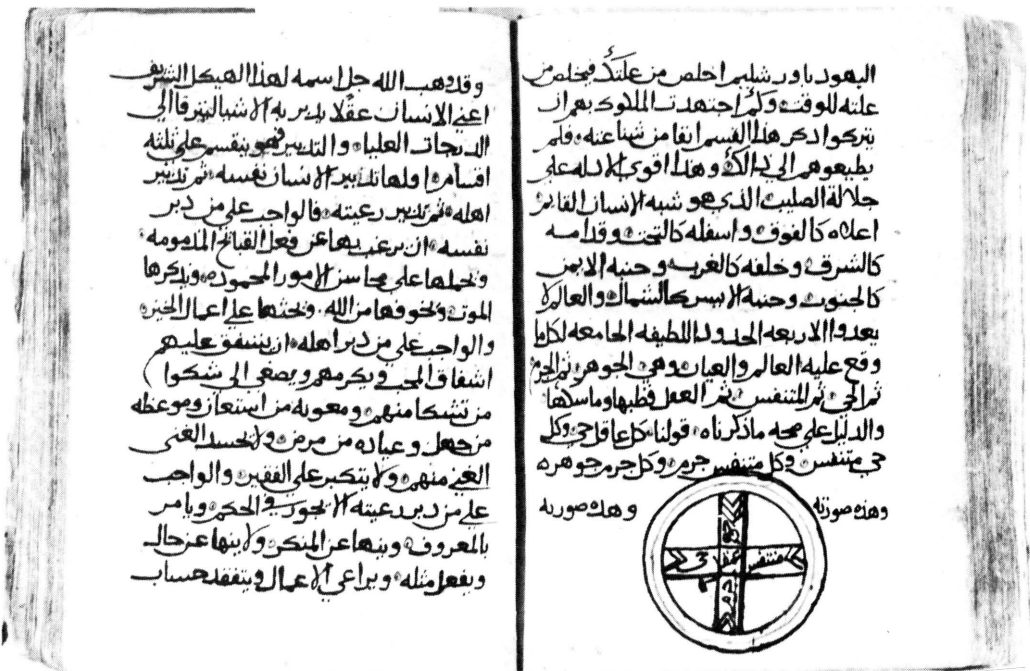 اليهود باورشليم اخلص من علتك فيخلص من
علته للوقت وكم اجتهدت الملوك بهم ان
يتركوا ذكر هذا القسم انفا من شناعته فلم
يطيعوهم الى ذالك وهذا اقوى الادله على
جلالة الصليب الذي هو شبه الانسان القايم
اعلاه كالفوق واسفله كالتحت وقدامه
كالشرق وخلفه كالغرب وجنبه الايمن
كالجنوب وجنبه الايسر كالشمال والعالم لا
يعدوا الاربعه الحدود اللطيفه الجامعه لكلما
وقع عليه العالم والعيان وهى الجوهر ثم الجرم
ثم الحي ثم المتنفس ثم العقل قطبها وماسكها
والدليل على صحه ماذكرناه قولنا كل عاقل حي وكل
حي متنفس وكل متنفس جرم وكل جرم جوهره
وهذه صورته وهذه صورته
متنفس عقل حي
جرم
وقد وهب الله جل اسمه لهذا الهيكل الشريف
اعني الانسان عقلا يدبر به الاشيا ليترقا الى
الدرجات العليا والتدبير فهو ينقسم على ثلثه
اقسام اولها تدبير الانسان نفسه ثم تدبير
اهله ثم تدبير رعيته فالواجب على من دبر
نفسه ان يرغب بها عن فعل القبايح المذمومه
ويحملها على محاسن الامور المحموده ويذكرها
الموت ويخوفها من الله ويحثها على اعمال الخير
والواجب على من دبر اهله ان يشفق عليهم
اشفاق المحب ويكرمهم ويصغى الى شكوا
من تشكا منهم ومعونه من استعان وموعظه
من جهل وعياده من مرض ولا يحسد الغنى
الغني منهم ولا يتكبر على الفقير والواجب
على من دبر رعيته الا يجور في الحكم ويامر
بالمعروف وينها عن المنكر ولا ينها عن حال
ويفعل مثله ويراعي الاعمال ويتفقد حساب